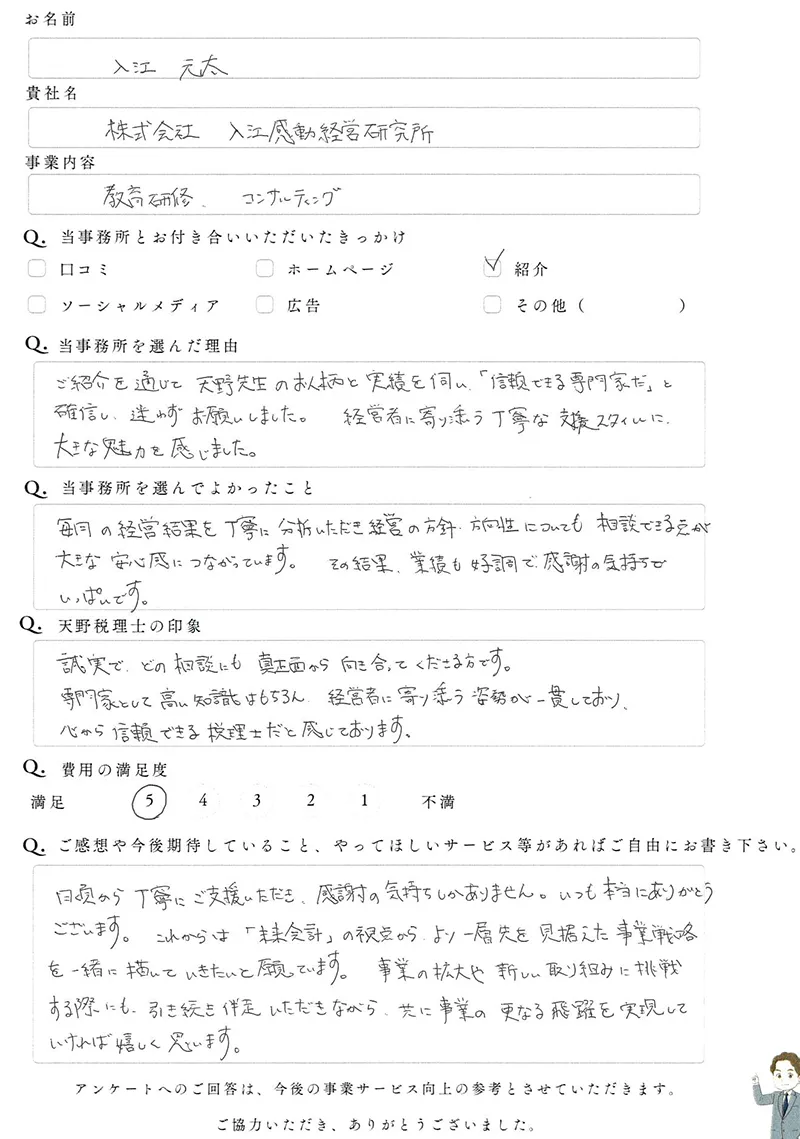 お名前
入江 元太
貴社名
株式会社 入江感動経営研究所
事業内容
教育研修、 コンサルティング
Q. 当事務所とお付き合いいただいたきっかけ
口コミ ホームページ 紹介
ソーシャルメディア 広告 その他( )
Q. 当事務所を選んだ理由
ご紹介を通じて 天野先生のお人柄と実績を伺い、「信頼できる専門家だ」と
確信し、迷わずお願いしました。 経営者に寄り添う丁寧な支援スタイルに、
大きな魅力を感じました。
Q. 当事務所を選んでよかったこと
毎月の経営結果を丁寧に分析いただき経営の方針・方向性についても 相談できる点が
大きな安心感につながっています。 その結果、業績も好調で、感謝の気持ちで
いっぱいです。
Q. 天野税理士の印象
誠実で、どの相談にも真正面から向き合ってくださる方です。
専門家として高い知識はもちろん、経営者に寄り添う姿勢が一貫しており、
心から信頼できる税理士だと感じております。
Q. 費用の満足度
満足 5 4 3 2 1 不満
Q. ご感想や今後期待していること、やってほしいサービス等があればご自由にお書き下さい。
日頃から丁寧にご支援いただき、感謝の気持ちしかありません。いつも本当にありがとう
ございます。 これからは「未来会計」の視点から、より一層先を見据えた事業戦略
を一緒に描いていきたいと願っています。 事業の拡大や新しい取り組みに挑戦
する際にも、引き続き伴走いただきながら、共に事業の更なる飛躍を実現して
いければ嬉しく思います。
アンケートへのご回答は、今後の事業サービス向上の参考とさせていただきます。
ご協力いただき、ありがとうございました。